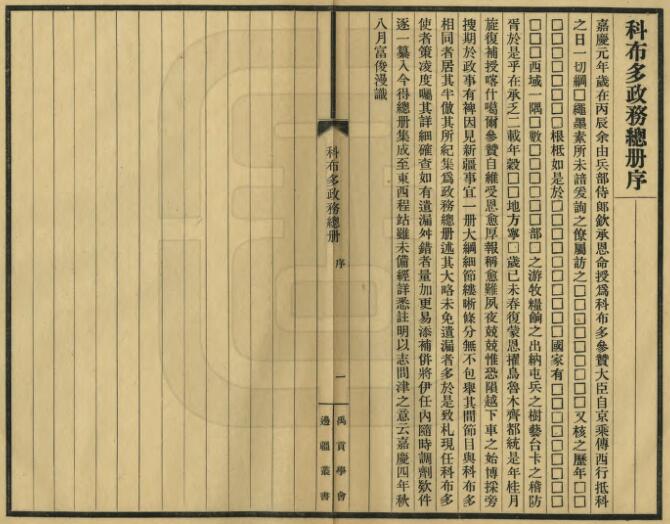 科布多政務總册序
嘉慶元年歲在丙辰余由兵部侍郎欽承恩命授爲科布多參贊大臣自京乘傳西行抵科
之日一切綱□繩墨素所未諳爰詢之僚屬訪之□□□□□□□□又核之歷年□□
□□□□□□□□根柢如是於□□□□□□□□□□國家有□□□□□□□□
□□□西域一隅□數□□□□□□部□之游牧糧餉之出納屯兵之樹藝台卡之稽防
胥於是乎在承乏二載年穀□□地方寧□歲已未春復蒙恩擢烏魯木齊都統是年桂月
旋復補授喀什噶爾參贊自維受恩愈厚報稱愈難夙夜兢兢惟恐隕越下車之始博採旁
搜期於政事有裨因見新疆事宜一册大綱細節縷晰條分無不包舉其間節目與科布多
相同者居其半倣其所紀集爲政務總册述其大略未免遺漏者多於是致札現任科布多
使者策凌度囑其詳細確查如有遺漏舛錯者量加更易添補併將伊任內隨時調劑欵件
逐一纂入今得總册集成至東西程站雖未備經詳悉註明以志問津之意云嘉慶四年秋
八月富俊漫識
科布多政務總册
序
一
禹貢學會
邊疆叢書